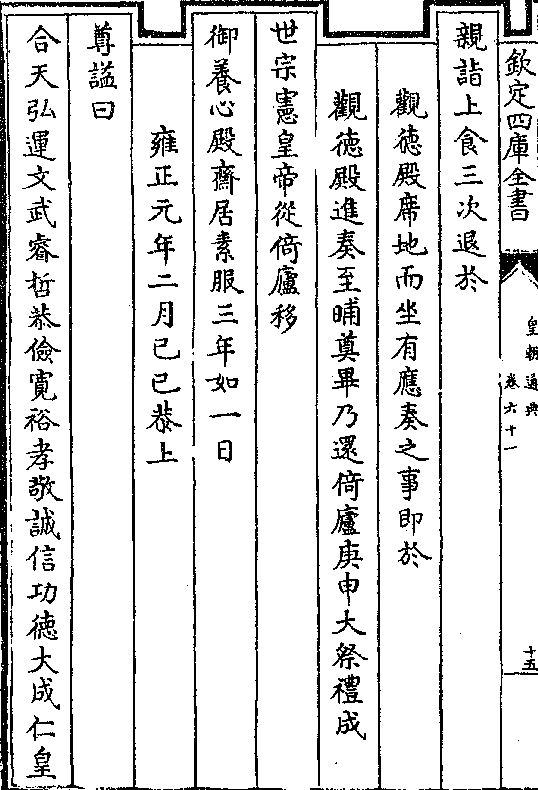 欽定四庫全書
皇朝通典
卷六十一
十五
親詣上食三次退於
觀徳殿席地而坐有應奏之事即於
觀徳殿進奏至晡奠畢乃還倚廬庚申大祭禮成
世宗憲皇帝從倚廬移
御養心殿齋居素服三年如一日
雍正元年二月己巳恭上
尊諡曰
合天弘運文武睿哲恭儉寛裕孝敬誠信功徳大成仁皇